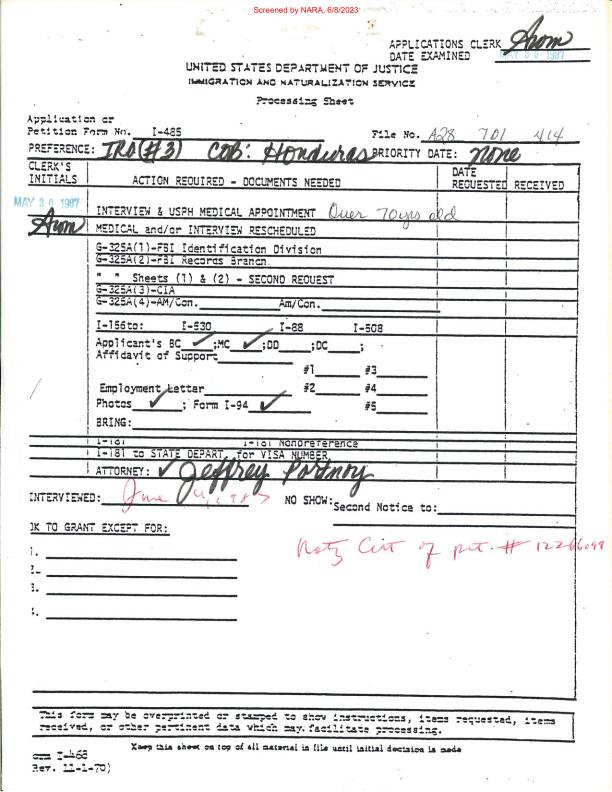 Screened by NARA, 6/8/2023
APPLICATIONS CLERK Arom
DATE EXAMINED MAY 30 1987
UNITED STATES DEPARTMENT OF JUSTICE
IMMIGRATION AND NATURALIZATION SERVICE
Processing Sheet
Application or
Petition Form No. I-485 File No. A28 701 414
PREFERENCE: IRO(#3) COB: Honduras PRIORITY DATE: none
CLERK'S INITIALS ACTION REQUIRED - DOCUMENTS NEEDED DATE REQUESTED RECEIVED
MAY 30 1987
INTERVIEW & USPH MEDICAL APPOINTMENT Over 70yrs old
Arom MEDICAL and/or INTERVIEW RESCHEDULED
G-325A(1)-FBI Identification Division
G-325A(2)-FBI Records Branch
" " Sheets (1) & (2) - SECOND REQUEST
G-325A(3)-CIA
G-325A(4)-AM/Con. Am/Con.
I-156to: I-530 I-88 I-508
Applicant's BC ✓;MC ✓;DD ;DC ;
Affidavit of Support
#1 #3
Employment Letter #2 #4
Photos ✓; Form I-94 ✓ #5
BRING:
I-181 I-181 Nonpreference
I-181 to STATE DEPART. for VISA NUMBER
ATTORNEY: ✓ Jeffrey Portnoy
INTERVIEWED: June 4, 1987 NO SHOW: Second Notice to:
OK TO GRANT EXCEPT FOR:
Natz Cert of pet. # 12266099
1.
2.
3.
4.
This form may be overprinted or stamped to show instructions, items requested, items
received, or other pertinent data which may facilitate processing.
Keep this sheet on top of all material in file until initial decision is made
orm I-468
Rev. 11-1-70)